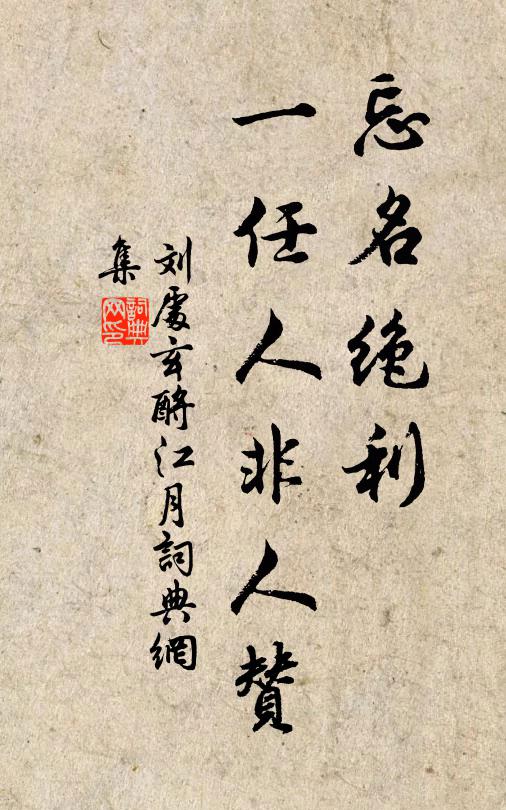 忘名绝利
一任人非人赞
刘處玄酹江月詞典網
集
詞典
网印